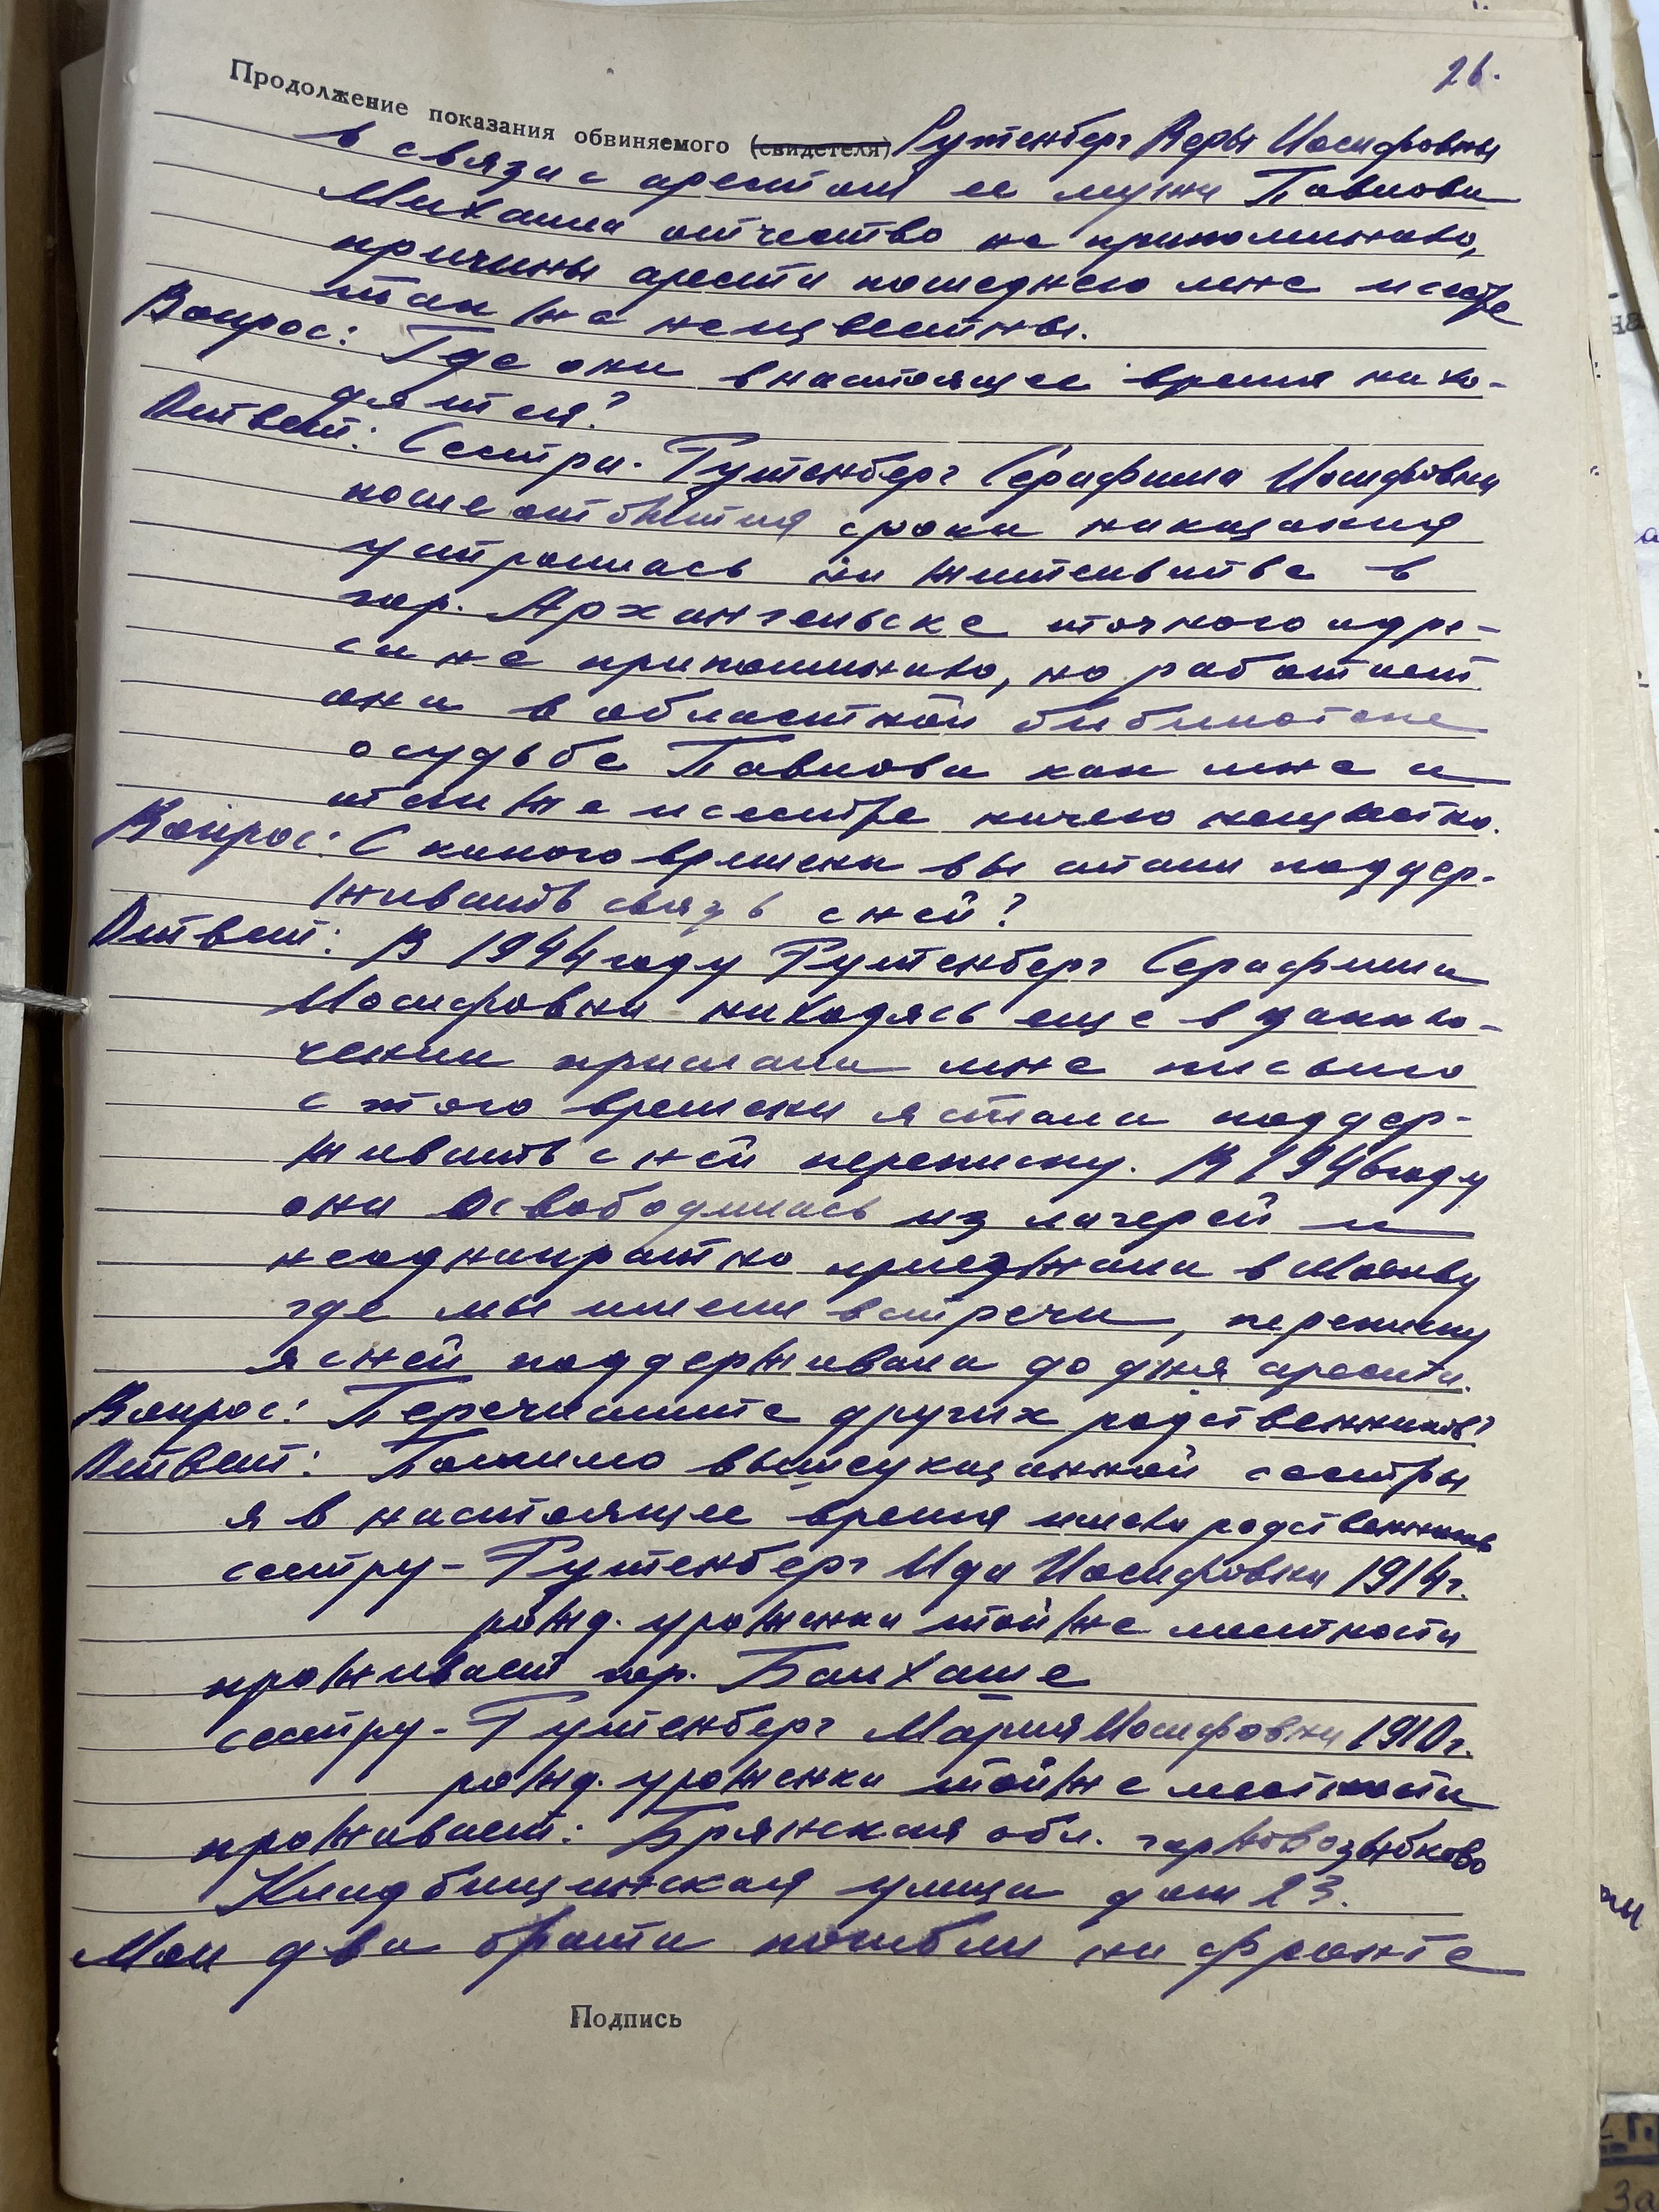 26.
Продолжение показания обвиняемого (свидетеля) Рутенберг Веры Иосифовны
в связи с арестом ее мужа Павлова
Михаила отчество не припоминаю,
причины ареста последнего мне и сестре
так же неизвестны.
Вопрос: Где они в настоящее время нахо-
дятся?
Ответ: Сестра - Рутенберг Серафима Иосифовна
после отбытия срока наказания
устроилась на жительство в
гор. Архангельске точного адре-
са не припоминаю, но работает
она в областной библиотеке
о судьбе Павлова как мне и
так же и сестре ничего неизвестно.
Вопрос: С какого времени вы стали поддер-
живать связь с ней?
Ответ: В 1944 году Рутенберг Серафима
Иосифовна находясь еще в заклю-
чении прислала мне письмо
с того времени я стала поддер-
живать с ней переписку. В 1946 году
она освободилась из лагерей и
неоднократно приезжала в Москву
где мы имели встречи, переписку
я с ней поддерживала до дня ареста.
Вопрос: Перечислите других родственников?
Ответ: Помимо вышеуказанной сестры
я в настоящее время имею родственников
сестру - Рутенберг Ида Иосифовна 1914 г.
рожд. уроженка той же местности
проживает гор. Балхаше
сестру - Рутенберг Мария Иосифовна 1910 г.
рожд. уроженка той же местности
проживает: Брянская обл. гор. Новозыбково
улица дом 23.
Мои два брата погибли на фронте
Подпись